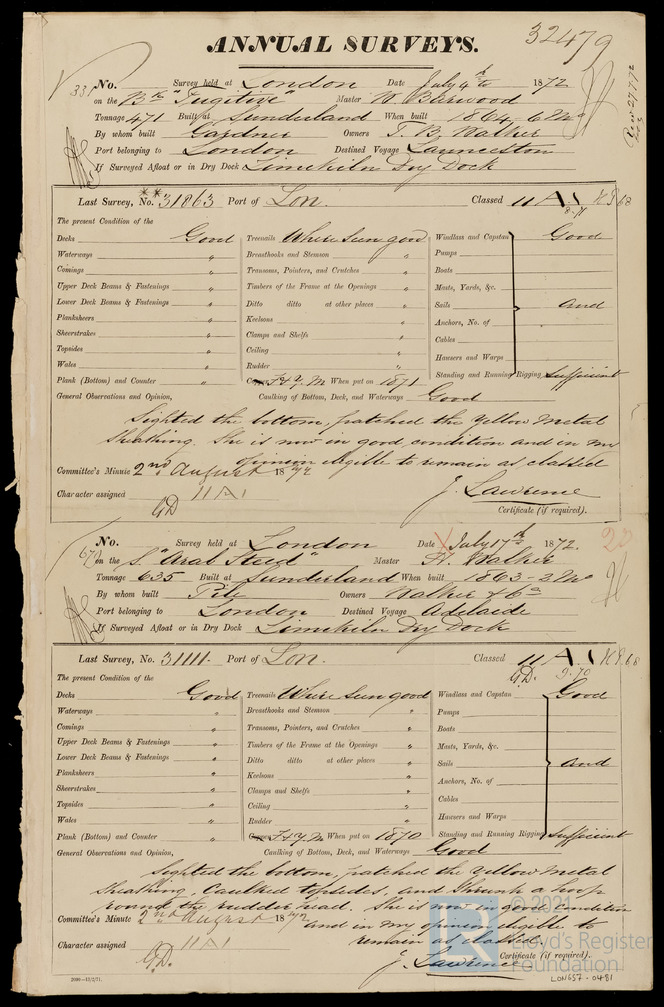 ANNUAL SURVEYS.
32479
No. Survey held at London Date July 4th 1872
on the Bk "Fugitive" Master W. Barwood
Tonnage 471 Built at Sunderland When built 1864-6 Mo
By whom built Gardner Owners T. B. Walker
Port belonging to London Destined Voyage Launceston
If Surveyed Afloat or in Dry Dock Limekiln Dry Dock
Last Survey, No. **31863 Port of Lon. Classed 11 A.1
The present Condition of the
Decks Good Treenails Where seen good Windlass and Capstan Good
Waterways " Breasthooks and Stemson " Pumps
Comings " Transoms, Pointers, and Crutches " Boats
Upper Deck Beams & Fastenings " Timbers of the Frame at the Openings " Masts, Yards, &c.
Lower Deck Beams & Fastenings " Ditto ditto at other places " Sails and
Planksheers " Keelsons " Anchors, No. of
Sheerstrakes " Clamps and Shelfs " Cables
Topsides " Ceiling " Hawsers and Warps
Wales " Rudder " Standing and Running Rigging Sufficient
Plank (Bottom) and Counter " F & Y. M When put on 1871
General Observations and Opinion, Caulking of Bottom, Deck, and Waterways Good
Sighted the bottom, patched the yellow metal
sheathing. She is now in good condition and in my
opinion eligible to remain as classed
Committee's Minute 2nd August 1872
J. Lawrence
Character assigned 11 A1
Certificate (if required).
GD
No. Survey held at London Date July 17th 1872.
on the S. "Arab Steed" Master H. Walker
Tonnage 635 Built at Sunderland When built 1863-2 Mo
By whom built Pile Owners Walker & Co
Port belonging to London Destined Voyage Adelaide
If Surveyed Afloat or in Dry Dock Limekiln Dry Dock
Last Survey, No. 31111. Port of Lon. Classed 11 A 1
GD. 9.70
The present Condition of the
Decks Good Treenails Where seen good Windlass and Capstan Good
Waterways " Breasthooks and Stemson " Pumps
Comings " Transoms, Pointers, and Crutches " Boats
Upper Deck Beams & Fastenings " Timbers of the Frame at the Openings " Masts, Yards, &c.
Lower Deck Beams & Fastenings " Ditto ditto at other places " Sails and
Planksheers " Keelsons " Anchors, No. of
Sheerstrakes " Clamps and Shelfs " Cables
Topsides " Ceiling " Hawsers and Warps
Wales " Rudder " Standing and Running Rigging Sufficient
Plank (Bottom) and Counter " F & Y. M When put on 1870
General Observations and Opinion, Caulking of Bottom, Deck, and Waterways Good
Sighted the bottom, patched the yellow metal
sheathing, Caulked topsides, and shrunk a hoop
round the rudder head. She is now in good condition
Committee's Minute 2nd August 1872 and in my opinion eligible to
remain as classed
Character assigned 11 A1
Certificate (if required).
J. Lawrence
G.D.
2000—13/2/71.
LON657-0481
LR © 2021
Lloyd's Register
Foundation